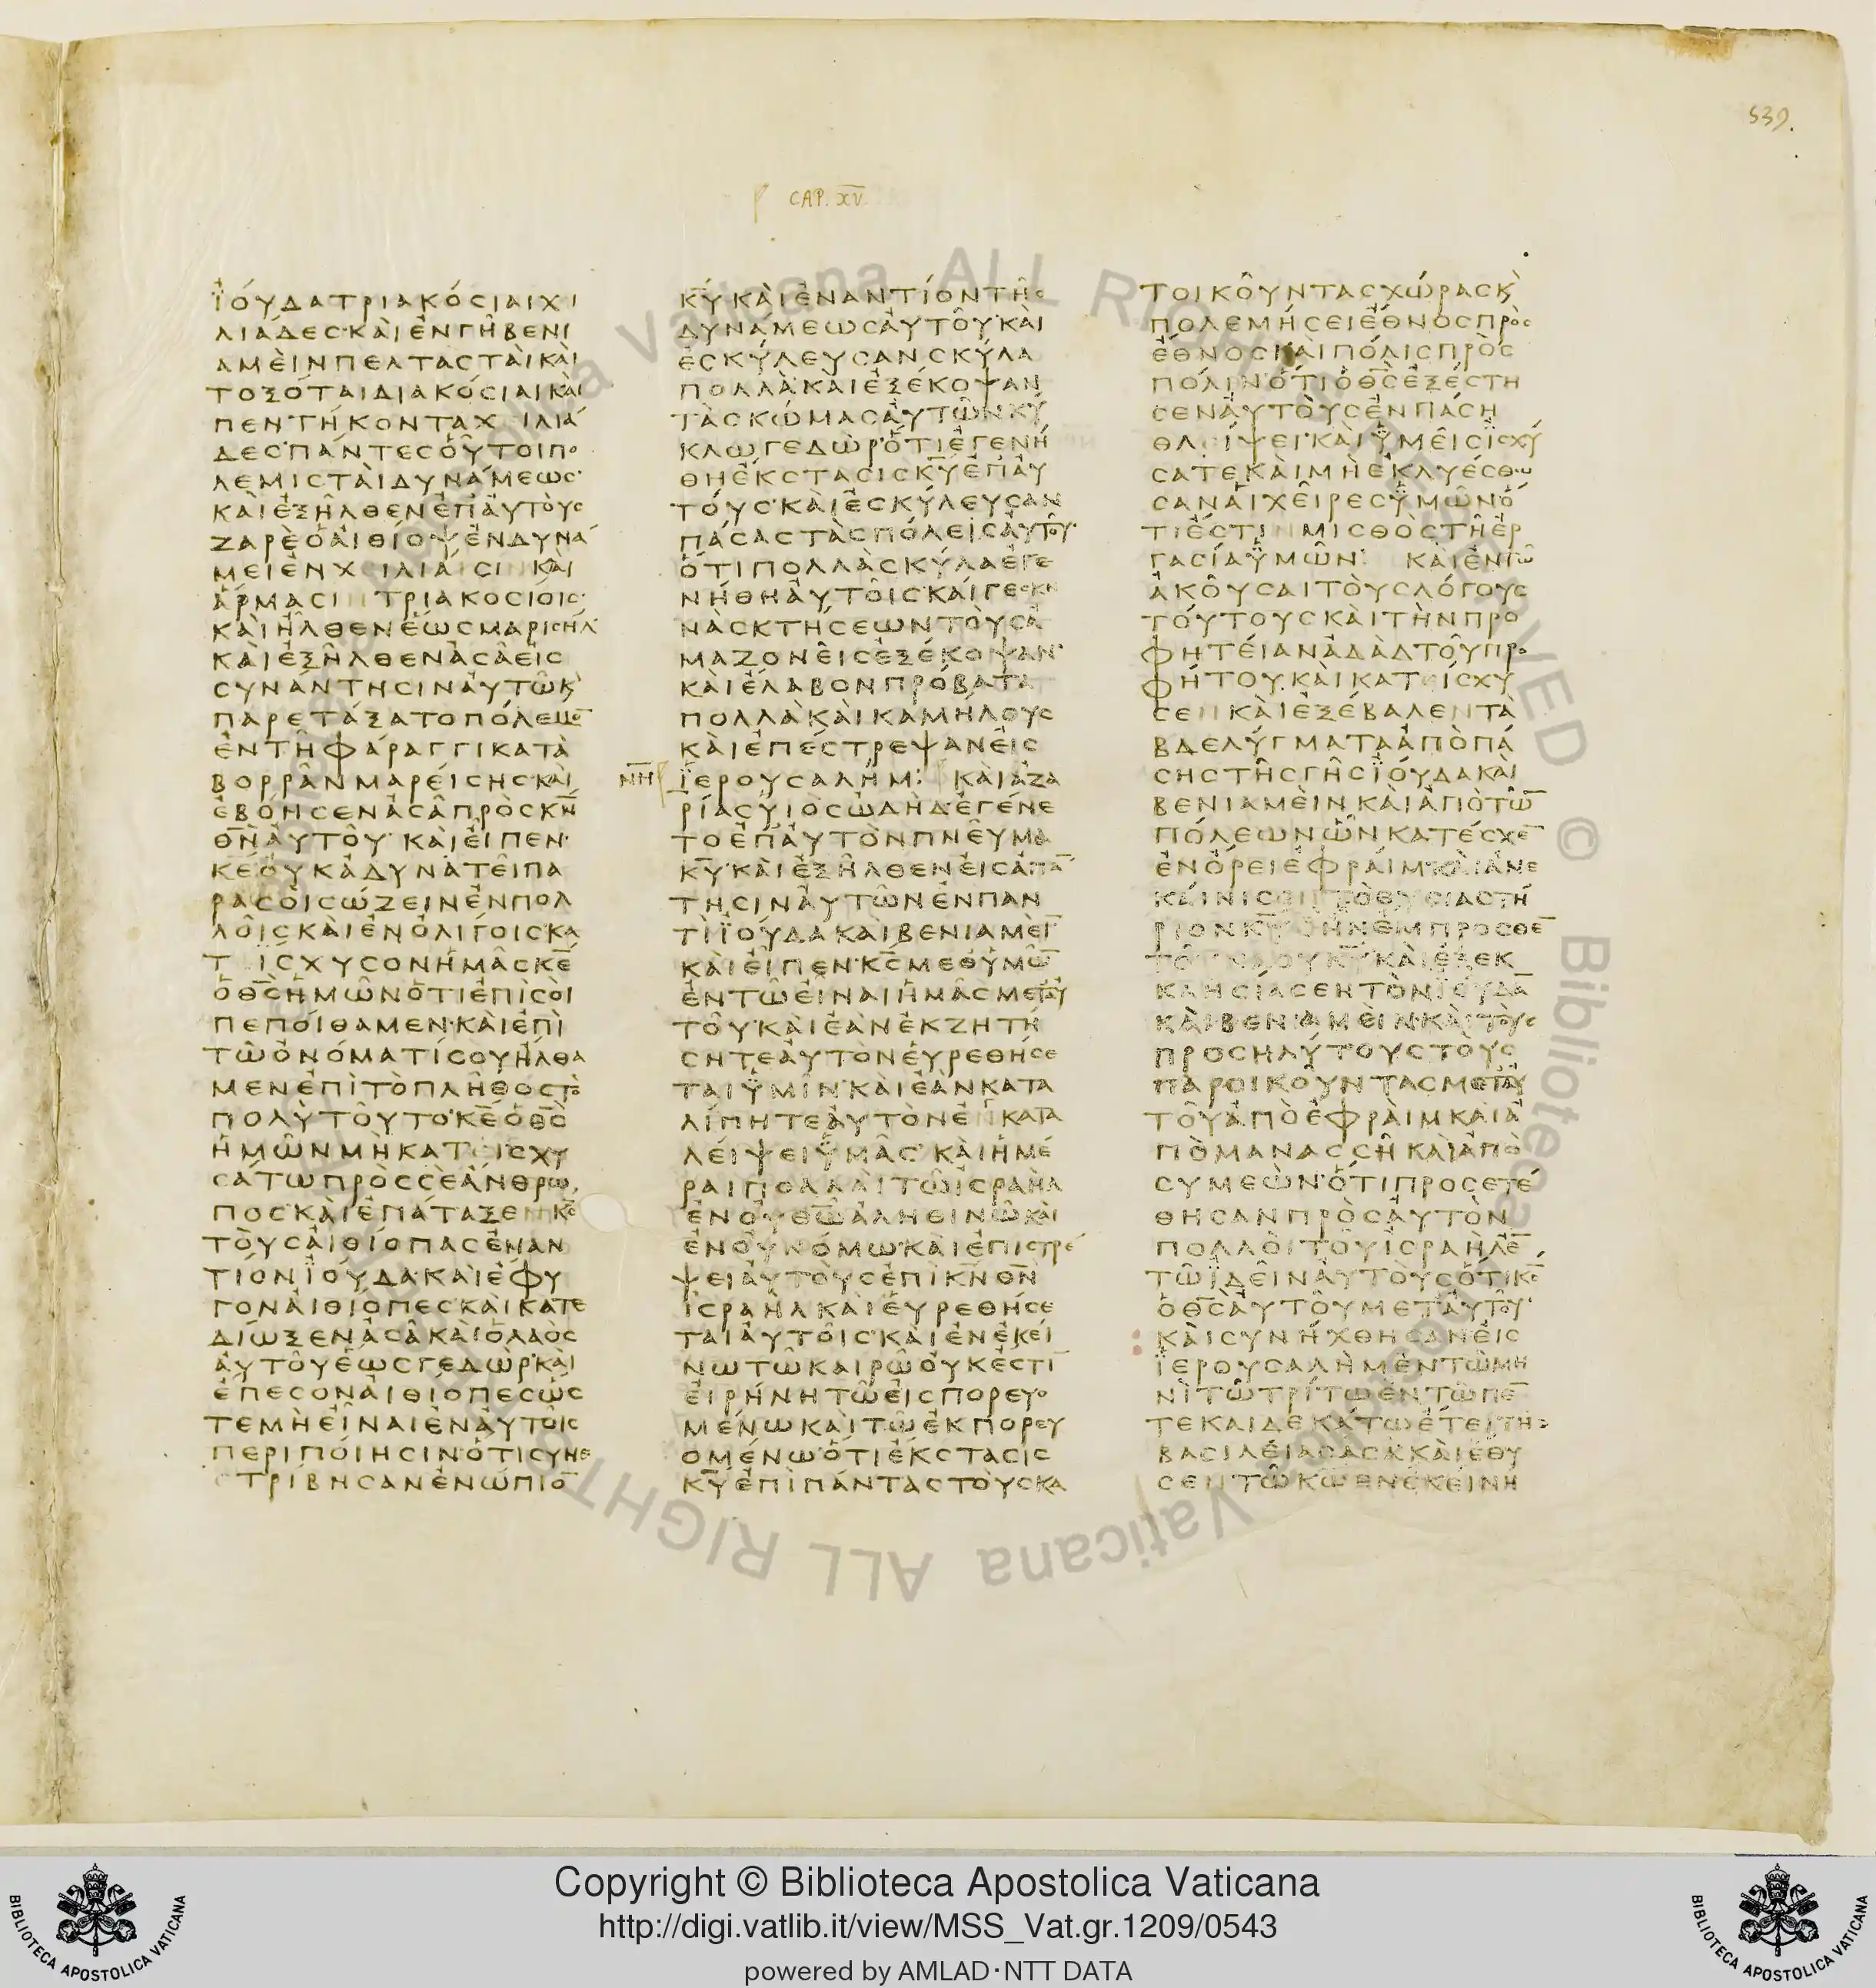 539.
CAP. XV.
ἸΟΥΔΑ ΤΡΙΑΚΟΣΙΑΙ ΧΙ
ΛΙΑΔΕΣ· ΚΑΙ ΕΝ ΓΗ ΒΕΝΙ
ΑΜΕΙΝ ΠΕΛΤΑΣΤΑΙ ΚΑΙ
ΤΟΞΟΤΑΙ ΔΙΑΚΟΣΙΑΙ ΚΑΙ
ΠΕΝΤΗΚΟΝΤΑ ΧΙΛΙΑ
ΔΕΣ· ΠΑΝΤΕΣ ΟΥΤΟΙ ΠΟ
ΛΕΜΙΣΤΑΙ ΔΥΝΑΜΕΩΣ·
ΚΑΙ ΕΞΗΛΘΕΝ ΕΠ ΑΥΤΟΥΣ
ΖΑΡΕ Ο ΑΙΘΙΟΨ ΕΝ ΔΥΝΑ
ΜΕΙ ΕΝ ΧΙΛΙΑΣΙΝ ΚΑΙ
ΑΡΜΑΣΙΝ ΤΡΙΑΚΟΣΙΟΙΣ·
ΚΑΙ ΗΛΘΕΝ ΕΩΣ ΜΑΡΙΣΗΛ
ΚΑΙ ΕΞΗΛΘΕΝ ΑΣΑ ΕΙΣ
ΣΥΝΑΝΤΗΣΙΝ ΑΥΤΩ Κ̀
ΠΑΡΕΤΑΞΑΤΟ ΠΟΛΕΜΟ̅
ΕΝ ΤΗ ΦΑΡΑΓΓΙ ΚΑΤΑ
ΒΟΡΡΑΝ ΜΑΡΕΙΣΗΣ· ΚΑΙ
ΕΒΟΗΣΕΝ ΑΣΑ ΠΡΟΣ Κ̅Ν̅
Θ̅Ν̅ ΑΥΤΟΥ· ΚΑΙ ΕΙΠΕΝ·
Κ̅Ε̅ ΟΥΚ ΑΔΥΝΑΤΕΙ ΠΑ
ΡΑ ΣΟΙ ΣΩΖΕΙΝ ΕΝ ΠΟΛ
ΛΟΙΣ ΚΑΙ ΕΝ ΟΛΙΓΟΙΣ· ΚΑ
ΤΙΣΧΥΣΟΝ ΗΜΑΣ Κ̅Ε̅
Ο Θ̅Σ̅ ΗΜΩΝ ΟΤΙ ΕΠΙ ΣΟΙ
ΠΕΠΟΙΘΑΜΕΝ· ΚΑΙ ΕΠΙ
ΤΩ ΟΝΟΜΑΤΙ ΣΟΥ ΗΛΘΑ
ΜΕΝ ΕΠΙ ΤΟ ΠΛΗΘΟΣ ΤΟ
ΠΟΛΥ ΤΟΥΤΟ· Κ̅Ε̅ Ο Θ̅Σ̅
ΗΜΩΝ ΜΗ ΚΑΤΙΣΧΥ
ΣΑΤΩ ΠΡΟΣ ΣΕ ΑΝΘΡΩ
ΠΟΣ· ΚΑΙ ΕΠΑΤΑΞΕΝ Κ̅Σ̅
ΤΟΥΣ ΑΙΘΙΟΠΑΣ ΕΝΑΝ
ΤΙΟΝ ἸΟΥΔΑ· ΚΑΙ ΕΦΥ
ΓΟΝ ΑΙΘΙΟΠΕΣ· ΚΑΙ ΚΑΤΕ
ΔΙΩΞΕΝ ΑΣΑ ΚΑΙ Ο ΛΑΟΣ
ΑΥΤΟΥ ΕΩΣ ΓΕΔΩΡ· ΚΑΙ
ΕΠΕΣΟΝ ΑΙΘΙΟΠΕΣ ΩΣ
ΤΕ ΜΗ ΕΙΝΑΙ ΕΝ ΑΥΤΟΙΣ
ΠΕΡΙΠΟΙΗΣΙΝ· ΟΤΙ ΣΥΝΕ
ΤΡΙΒΗΣΑΝ ΕΝΩΠΙΟ̅
Κ̅Υ̅ ΚΑΙ ΕΝΑΝΤΙΟΝ ΤΗΣ
ΔΥΝΑΜΕΩΣ ΑΥΤΟΥ· ΚΑΙ
ΕΣΚΥΛΕΥΣΑΝ ΣΚΥΛΑ
ΠΟΛΛΑ· ΚΑΙ ΕΞΕΚΟΨΑΝ
ΤΑΣ ΚΩΜΑΣ ΑΥΤΩΝ ΚΥ
ΚΛΩ ΓΕΔΩΡ· ΟΤΙ ΕΓΕΝΗ
ΘΗ ΕΚΣΤΑΣΙΣ Κ̅Υ̅ ΕΠ ΑΥ
ΤΟΥΣ· ΚΑΙ ΕΣΚΥΛΕΥΣΑΝ
ΠΑΣΑΣ ΤΑΣ ΠΟΛΕΙΣ ΑΥΤΟΥ·
ΟΤΙ ΠΟΛΛΑ ΣΚΥΛΑ ΕΓΕ
ΝΗΘΗ ΑΥΤΟΙΣ· ΚΑΙ ΓΕ ΣΚΗ
ΝΑΣ ΚΤΗΣΕΩΝ ΤΟΥΣ Α
ΜΑΖΟΝΕΙΣ ΕΞΕΚΟΨΑΝ·
ΚΑΙ ΕΛΑΒΟΝ ΠΡΟΒΑΤΑ
ΠΟΛΛΑ ΚΑΙ ΚΑΜΗΛΟΥΣ
ΚΑΙ ΕΠΕΣΤΡΕΨΑΝ ΕΙΣ
Ν̅Η̅ ἹΕΡΟΥΣΑΛΗΜ: ΚΑΙ ΑΖΑ
ΡΙΑΣ ΥΙΟΣ ΩΔΗΔ· ΕΓΕΝΕ
ΤΟ ΕΠ ΑΥΤΟΝ ΠΝΕΥΜΑ
Κ̅Υ̅· ΚΑΙ ΕΞΗΛΘΕΝ ΕΙΣ ΑΠΑ̅
ΤΗΣΙΝ ΑΥΤΩΝ ΕΝ ΠΑΝ
ΤΙ ἸΟΥΔΑ ΚΑΙ ΒΕΝΙΑΜΕΙ̅
ΚΑΙ ΕΙΠΕΝ· Κ̅Σ̅ ΜΕΘ ΥΜΩ̅
ΕΝ ΤΩ ΕΙΝΑΙ ΗΜΑΣ ΜΕΤ ΑΥ
ΤΟΥ· ΚΑΙ ΕΑΝ ΕΚΖΗΤΗ
ΣΗΤΕ ΑΥΤΟΝ ΕΥΡΕΘΗΣΕ
ΤΑΙ ΥΜΙΝ· ΚΑΙ ΕΑΝ ΚΑΤΑ
ΛΙΠΗΤΕ ΑΥΤΟΝ ΕΝΚΑΤΑ
ΛΕΙΨΕΙ ΥΜΑΣ· ΚΑΙ ΗΜΕ
ΡΑΙ ΠΟΛΛΑΙ ΤΩ ΙΣΡΑΗΛ
ΕΝ ΟΥ Θ̅Ω̅ ΑΛΗΘΙΝΩ ΚΑΙ
ΕΝ ΟΥ ΝΟΜΩ· ΚΑΙ ΕΠΙΣΤΡΕ
ΨΕΙ ΑΥΤΟΥΣ ΕΠΙ Κ̅Ν̅ Θ̅Ν̅
ΙΣΡΑΗΛ ΚΑΙ ΕΥΡΕΘΗΣΕ
ΤΑΙ ΑΥΤΟΙΣ· ΚΑΙ ΕΝ ΕΚΕΙ
ΝΩ ΤΩ ΚΑΙΡΩ ΟΥΚ ΕΣΤΙ̅
ΕΙΡΗΝΗ ΤΩ ΕΙΣΠΟΡΕΥΟ
ΜΕΝΩ ΚΑΙ ΤΩ ΕΚΠΟΡΕΥ
ΟΜΕΝΩ· ΟΤΙ ΕΚΣΤΑΣΙΣ
Κ̅Υ̅ ΕΠΙ ΠΑΝΤΑΣ ΤΟΥΣ ΚΑ
ΤΟΙΚΟΥΝΤΑΣ ΧΩΡΑΣ Κ̀
ΠΟΛΕΜΗΣΕΙ ΕΘΝΟΣ ΠΡΟΣ
ΕΘΝΟΣ ΚΑΙ ΠΟΛΙΣ ΠΡΟΣ
ΠΟΛΙΝ· ΟΤΙ Ο Θ̅Σ̅ ΕΞΕΣΤΗ
ΣΕΝ ΑΥΤΟΥΣ ΕΝ ΠΑΣΗ
ΘΛΙΨΕΙ· ΚΑΙ ΥΜΕΙΣ ΙΣΧΥ
ΣΑΤΕ ΚΑΙ ΜΗ ΕΚΛΥΕΣΘΩ
ΣΑΝ ΑΙ ΧΕΙΡΕΣ ΥΜΩΝ· Ο
ΤΙ ΕΣΤΙΝ ΜΙΣΘΟΣ ΤΗ ΕΡ
ΓΑΣΙΑ ΥΜΩΝ: ΚΑΙ ΕΝ ΤΩ
ΑΚΟΥΣΑΙ ΤΟΥΣ ΛΟΓΟΥΣ
ΤΟΥΤΟΥΣ ΚΑΙ ΤΗΝ ΠΡΟ
ΦΗΤΕΙΑΝ ΑΔΑΔ ΤΟΥ ΠΡΟ
ΦΗΤΟΥ· ΚΑΙ ΚΑΤΙΣΧΥ
ΣΕΝ ΚΑΙ ΕΞΕΒΑΛΕΝ ΤΑ
ΒΔΕΛΥΓΜΑΤΑ ΑΠΟ ΠΑ
ΣΗΣ ΤΗΣ ΓΗΣ ἸΟΥΔΑ ΚΑΙ
ΒΕΝΙΑΜΕΙΝ ΚΑΙ ΑΠΟ ΤΩ̅
ΠΟΛΕΩΝ ΩΝ ΚΑΤΕΣΧΕ̅
ΕΝ ΟΡΕΙ ΕΦΡΑΙΜ· ΚΑΙ ΑΝΕ
ΚΑΙΝΙΣΕΝ ΤΟ ΘΥΣΙΑΣΤΗ
ΡΙΟΝ Κ̅Υ̅ Ο ΗΝ ΕΜΠΡΟΣΘΕ̅
ΤΟΥ ΝΑΟΥ Κ̅Υ̅· ΚΑΙ ΕΞΕΚ
ΚΛΗΣΙΑΣΕΝ ΤΟΝ ἸΟΥΔΑ̅
ΚΑΙ ΒΕΝΙΑΜΕΙΝ· ΚΑΙ ΤΟΥΣ
ΠΡΟΣΗΛΥΤΟΥΣ ΤΟΥΣ
ΠΑΡΟΙΚΟΥΝΤΑΣ ΜΕΤ ΑΥ
ΤΟΥ ΑΠΟ ΕΦΡΑΙΜ ΚΑΙ Α
ΠΟ ΜΑΝΑΣΣΗ ΚΑΙ ΑΠΟ
ΣΥΜΕΩΝ· ΟΤΙ ΠΡΟΣΕΤΕ
ΘΗΣΑΝ ΠΡΟΣ ΑΥΤΟΝ
ΠΟΛΛΟΙ ΤΟΥ ΙΣΡΑΗΛ Ε̅
ΤΩ ΙΔΕΙΝ ΑΥΤΟΥΣ ΟΤΙ Κ̅Σ̅
Ο Θ̅Σ̅ ΑΥΤΟΥ ΜΕΤ ΑΥΤΟΥ·
ΚΑΙ ΣΥΝΗΧΘΗΣΑΝ ΕΙΣ
ἹΕΡΟΥΣΑΛΗΜ ΕΝ ΤΩ ΜΗ
ΝΙ ΤΩ ΤΡΙΤΩ ΕΝ ΤΩ ΠΕ̅
ΤΕΚΑΙΔΕΚΑΤΩ ΕΤΕΙ ΤΗΣ
ΒΑΣΙΛΕΙΑΣ ΑΣΑ· ΚΑΙ ΕΘΥ
ΣΕΝ ΤΩ Κ̅Ω̅ ΕΝ ΕΚΕΙΝΗ
Copyright © Biblioteca Apostolica Vaticana
http://digi.vatlib.it/view/MSS_Vat.gr.1209/0543
powered by AMLAD·NTT DATA
BIBLIOTECA APOSTOLICA VATICANA
BIBLIOTECA APOSTOLICA VATICANA